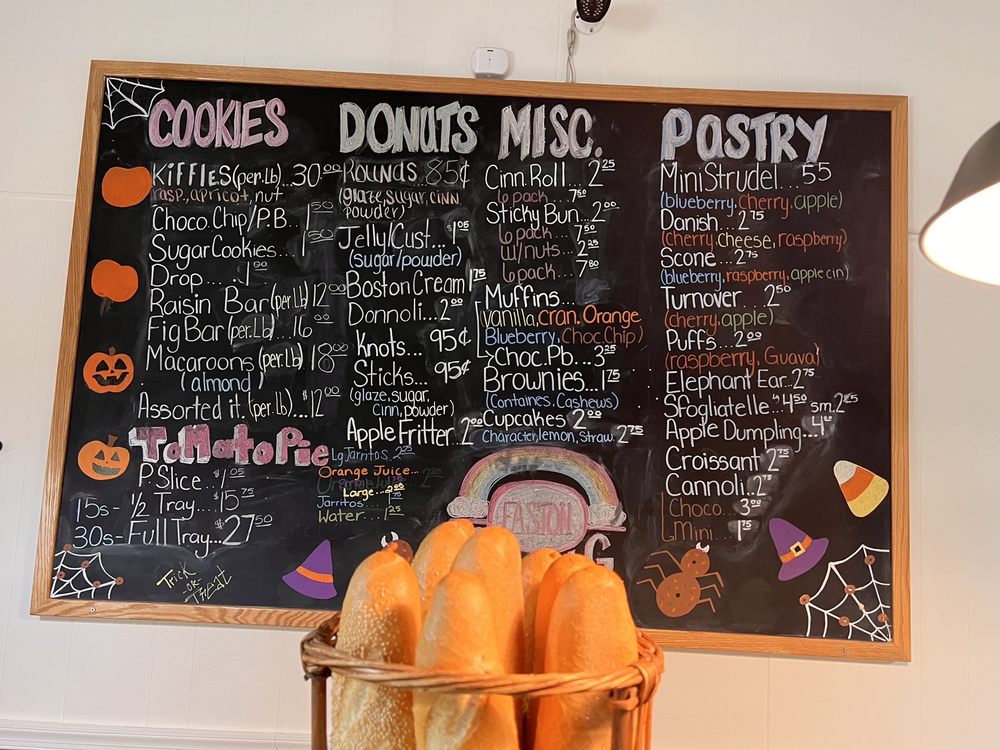 COOKIES
KiffLES (per.Lb)...30⁰⁰
rasp, apricot, nut
Choco.Chip/P.B. 1⁵⁰
Sugar Cookies... 1⁵⁰
Drop.....1⁰⁰
Raisin Bar (per.Lb) 12⁰⁰
Fig Bar (per.Lb)...16⁰⁰
Macaroons (per.Lb) 18⁰⁰
(almond)
Assorted it. (per lb)...$12⁰⁰
ToMatoPie
P.Slice...$1⁰⁵
15s- ½ Tray...$15⁷⁵
30s- Full Tray...$27⁵⁰
Trick
-or-
Treat
DONUTS
Rounds...85¢
(glaze, sugar, cinn
powder)
Jelly/Cust...$1⁰⁵
(sugar/powder)
Boston Cream 1⁷⁵
Donnoli...2⁰⁰
Knots... 95¢
Sticks... 95¢
(glaze, sugar,
cinn, powder)
Apple Fritter.2⁰⁰
Lg Jarritos
Orange Juice...
Small
Large...
Jarritos
Water...1²⁵
MISC.
Cinn.Roll...2²⁵
6 pack...7⁵⁰
Sticky Bun...2⁰⁰
6 pack...7⁵⁰
w/nuts...2²⁵
6 pack...7⁸⁰
Muffins...
vanilla, cran. Orange
Blueberry, Choc.Chip)
Choc.Pb...3²⁵
Brownies...1⁷⁵
(Containes, Cashews)
Cupcakes 2⁰⁰
Character, lemon, straw. 2⁷⁵
FASTON
G
PASTRY
Mini Strudel...55
(blueberry, Cherry, apple)
Danish...2⁷⁵
(cherry, Cheese, raspberry)
Scone...2⁷⁵
(blueberry, raspberry, apple cin)
Turnover...2⁵⁰
(cherry, apple)
Puffs...2⁰⁰
(raspberry, Guava)
Elephant Ear..2⁷⁵
Sfogliatelle 4⁵⁰ sm.
Apple Dumpling...4⁰⁰
Croissant 2⁷⁵
Cannoli..2⁷⁵
Choco...3⁰⁰
Mini... 1⁷⁵